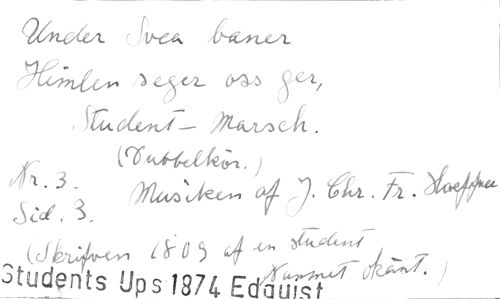 Under Svea baner
Himlen seger oss ger,
Student-Marsch.
(Dubbelkör.)
Nr. 3. Musiken af J. Chr. Fr. Haeffner
Sid. 3.
(Skrifven 1809 af en student
Namnet okänt.)
Students Ups 1874 Edquist